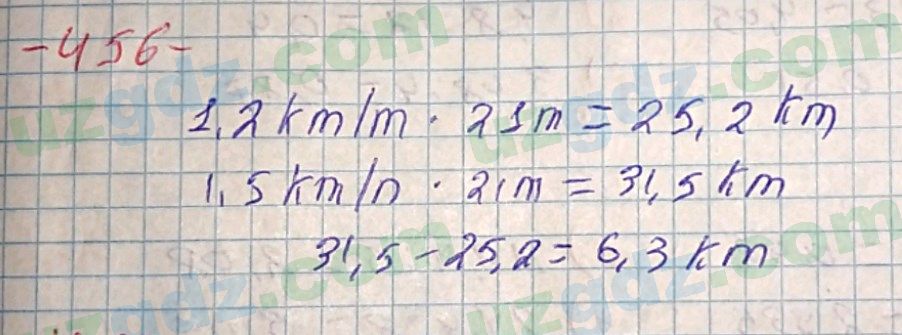 -456-
1,2 km/m · 21m = 25,2 km
1,5 km/n · 21m = 31,5 km
31,5 - 25,2 = 6,3 km
uzgdz.com
uzgdz.com
uzgdz.com
uzgdz.com